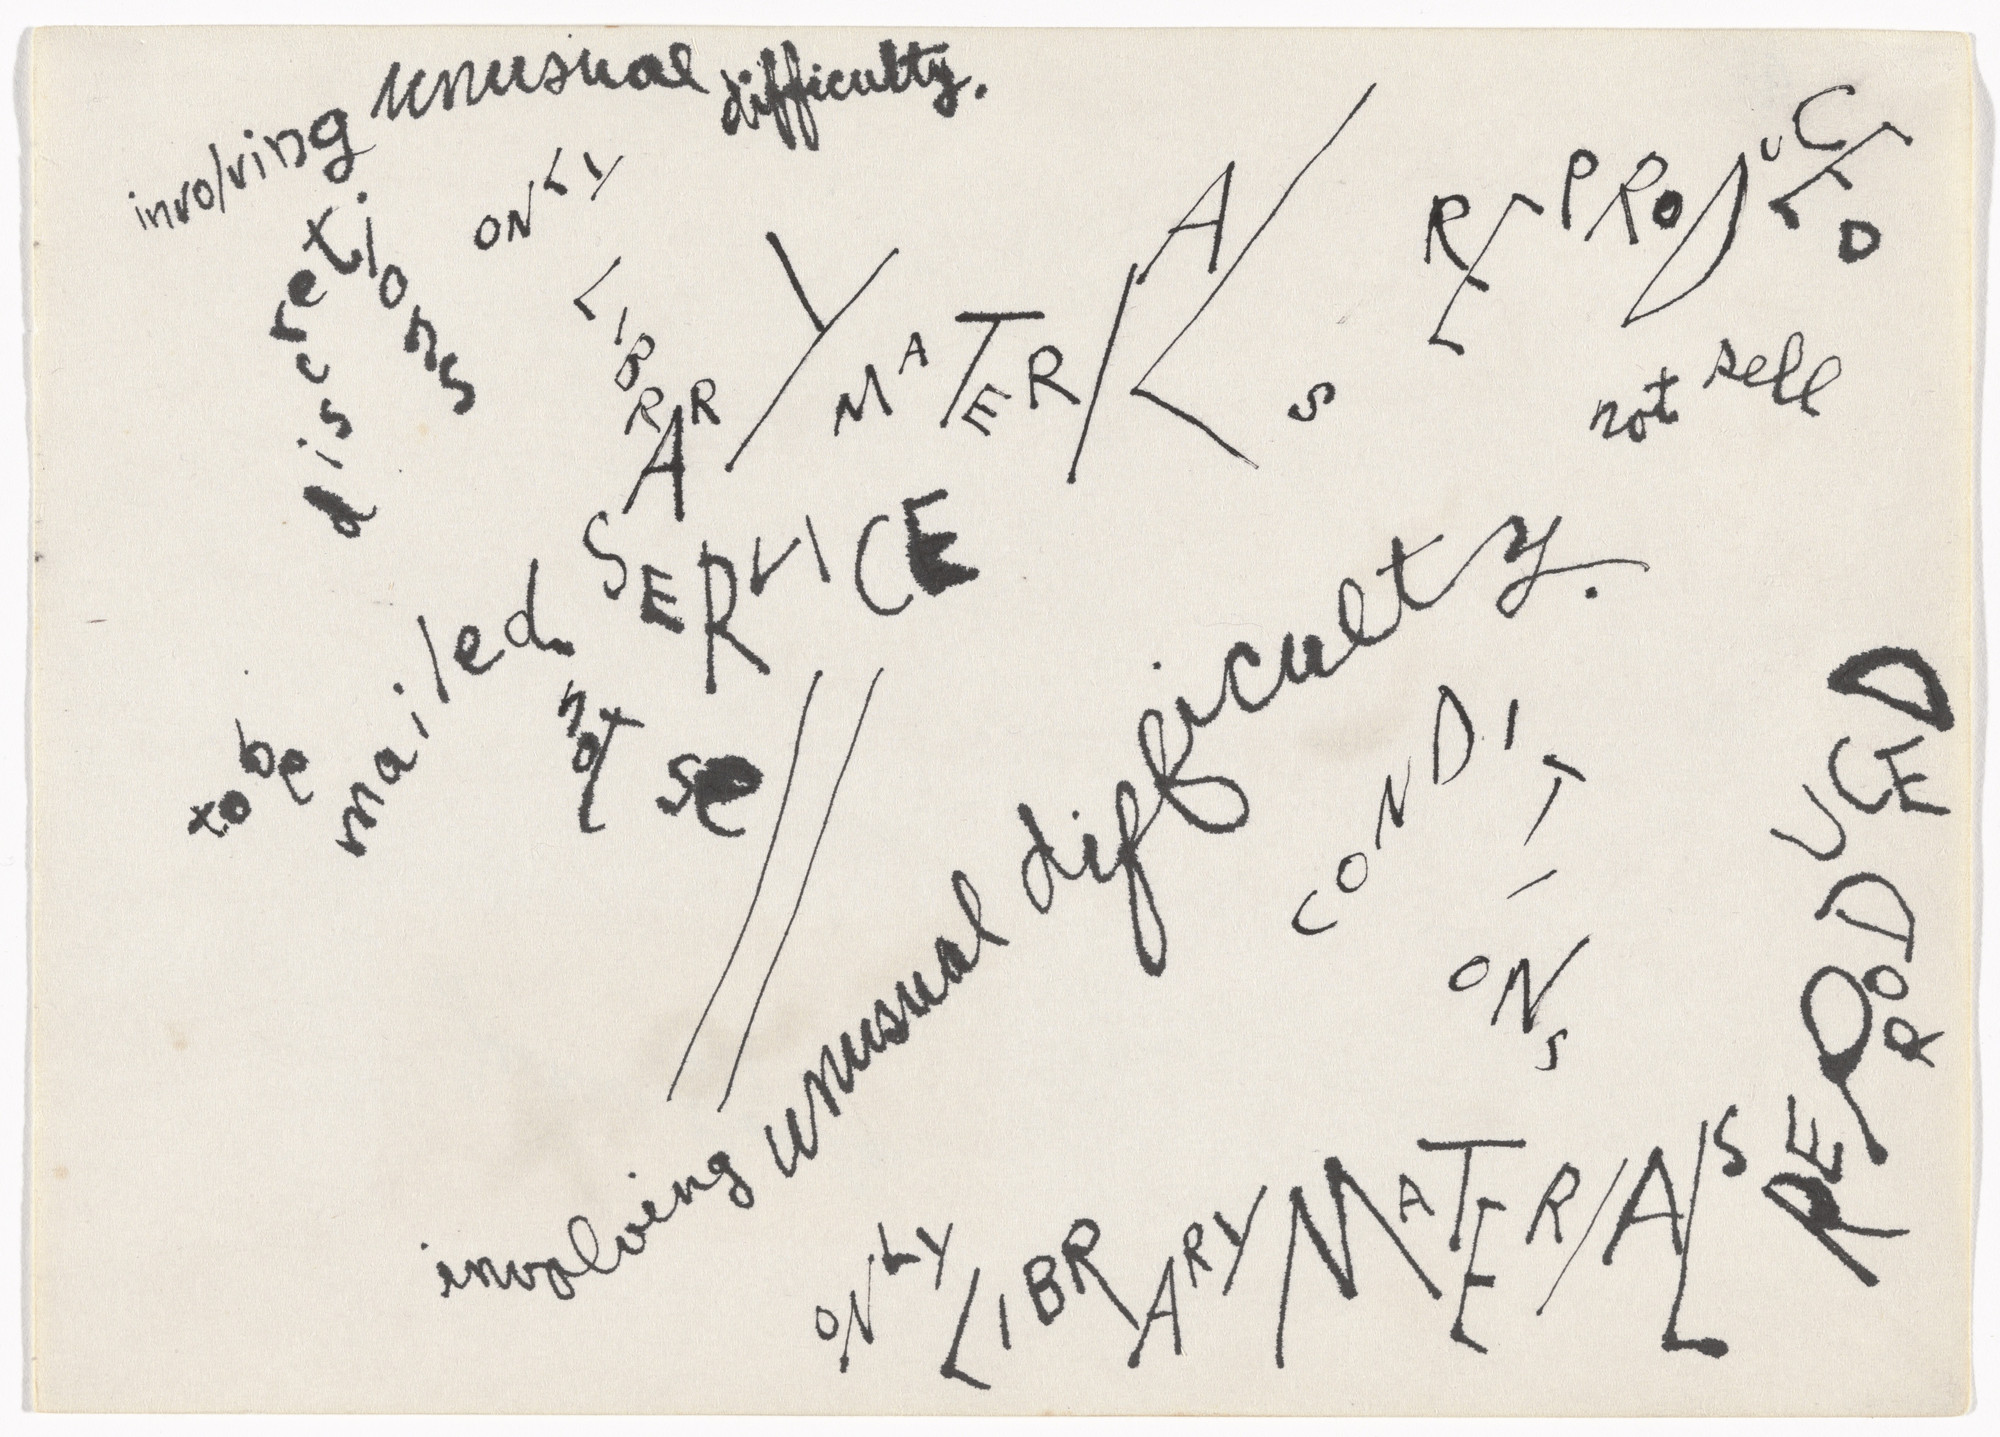 involving unusual difficulty.
discretions
ONLY
LIBRARY MATERIALS REPRODUCED
not sell
SERVICE
to be mailed,
not sell
involving unusual difficulty.
CONDITIONS
ONLY LIBRARY MATERIALS REPRODUCED